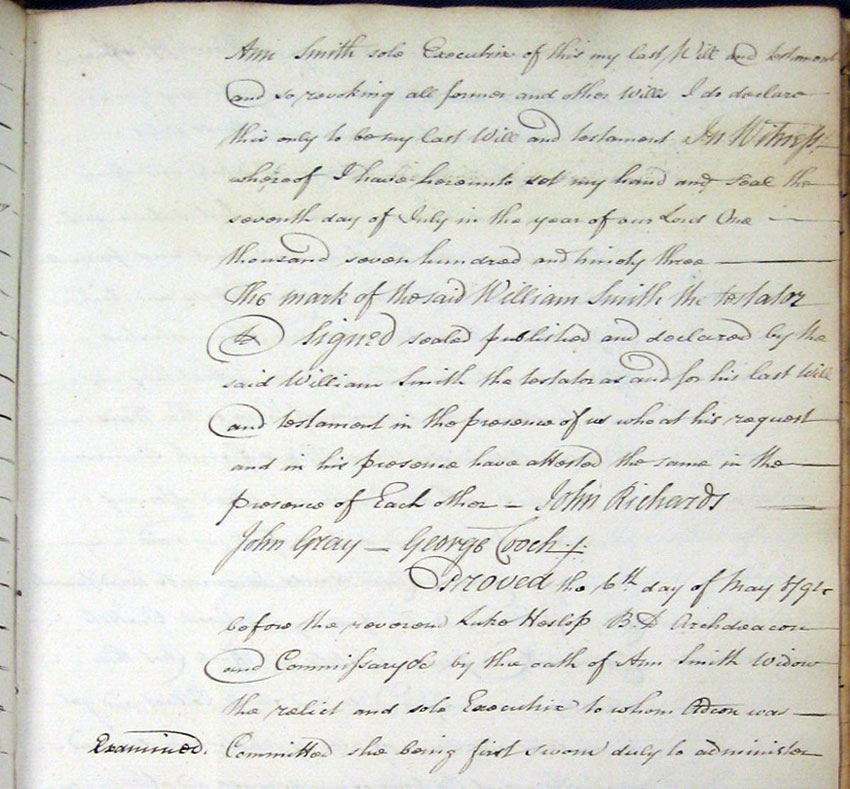 Ann Smith sole Executrix of this my last Will and testament
and so revoking all former and other Wills I do declare
this only to be my last Will and testament In Witness
whereof I have hereunto set my hand and seal the
seventh day of July in the year of our Lord One
thousand seven hundred and ninety three
The mark of the said William Smith the testator
signed sealed published and declared by the
said William Smith the testator as and for his last Will
and testament in the presence of us who at his request
and in his presence have attested the same in the
presence of Each other – John Richards
John Gray – George Cooch +
Proved the 6th day of May
before the reverend Luke Heslop B.D. Archdeacon
and Commissary &c by the oath of Ann Smith Widow
the relict and sole Executrix to whom Adcon was
Examined. Committed she being first sworn duly to administer